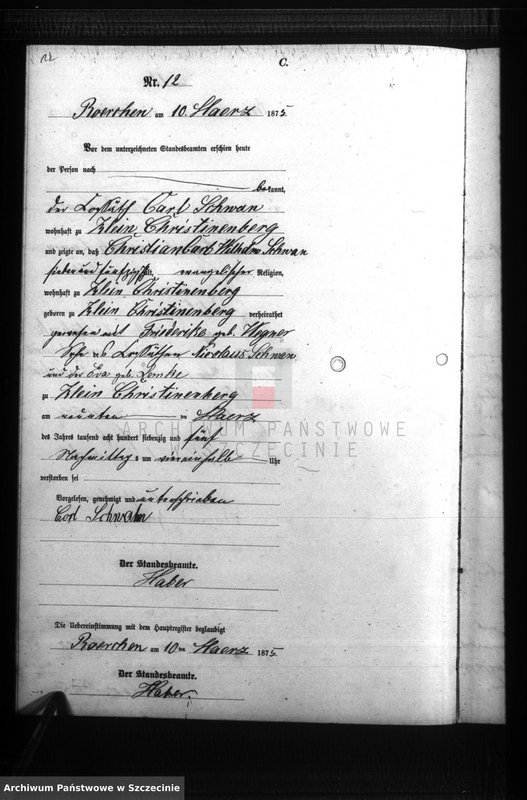 12
C.
Nr. 12
Roerchen am 10. Maerz 1875
Vor dem unterzeichneten Standesbeamten erschien heute
der Person nach
bekannt,
der Carl Schwan
wohnhaft zu Klein Christinenberg
und zeigte an, daß Christian Carl Wilhelm Schwan
sieben und fünfzig alt, evangelischer Religion,
wohnhaft zu Klein Christinenberg
geboren zu Klein Christinenberg verheirathet
gewesen mit Friederike geb. Wegner
Sohn des Nicolaus Schwan
und der Eva geb. Lemke
zu Klein Christinenberg
am neunten im Maerz
des Jahres tausend acht hundert siebenzig und fünf
Nachmittags um viereinhalb Uhr
verstorben sei
Vorgelesen, genehmigt und unterschrieben
Carl Schwahn
Der Standesbeamte.
Haber
Die Uebereinstimmung mit dem Hauptregister beglaubigt
Roerchen am 10ten Maerz 1875
Der Standesbeamte.
Haber.
ARCHIWUM PAŃSTWOWE
W SZCZECINIE
Archiwum Państwowe w Szczecinie